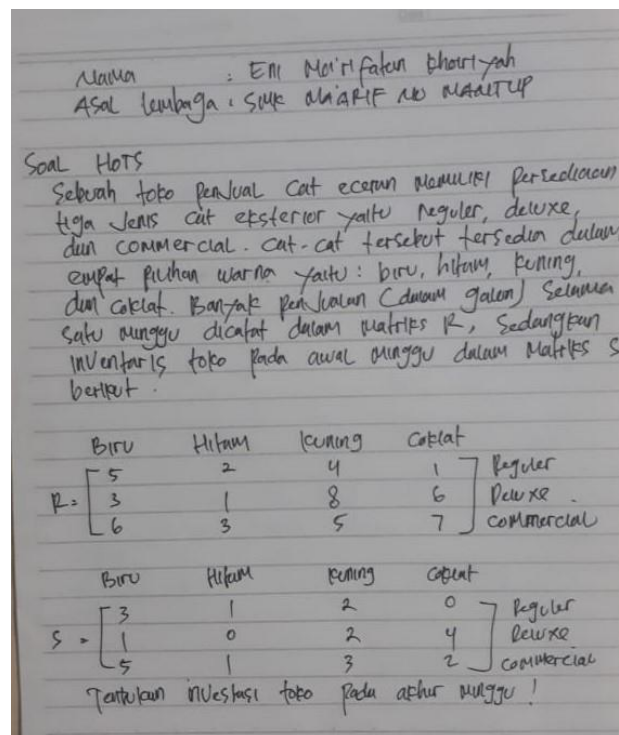 Nama : Eni Ma'rifatun Khoiriyah
Asal lembaga : SMK MA'ARIF NU MANTUP
Soal HOTS
Sebuah toko penjual cat eceran memiliki persediaan
tiga jenis cat eksterior yaitu reguler, deluxe,
dan commercial. Cat-cat tersebut tersedia dalam
empat pilihan warna yaitu : biru, hitam, kuning,
dan coklat. Banyak penjualan (dalam galon) selama
satu minggu dicatat dalam matriks R, sedangkan
inventaris toko pada awal minggu dalam matriks S
berikut.
Biru Hitam Kuning Coklat
5 2 4 1 Reguler
R = 3 1 8 6 Deluxe .
6 3 5 7 Commercial
Biru Hitam Kuning Coklat
3 1 2 0 Reguler
S = 1 0 2 4 Deluxe
5 1 3 2 Commercial
Tentukan investasi toko pada akhir minggu !